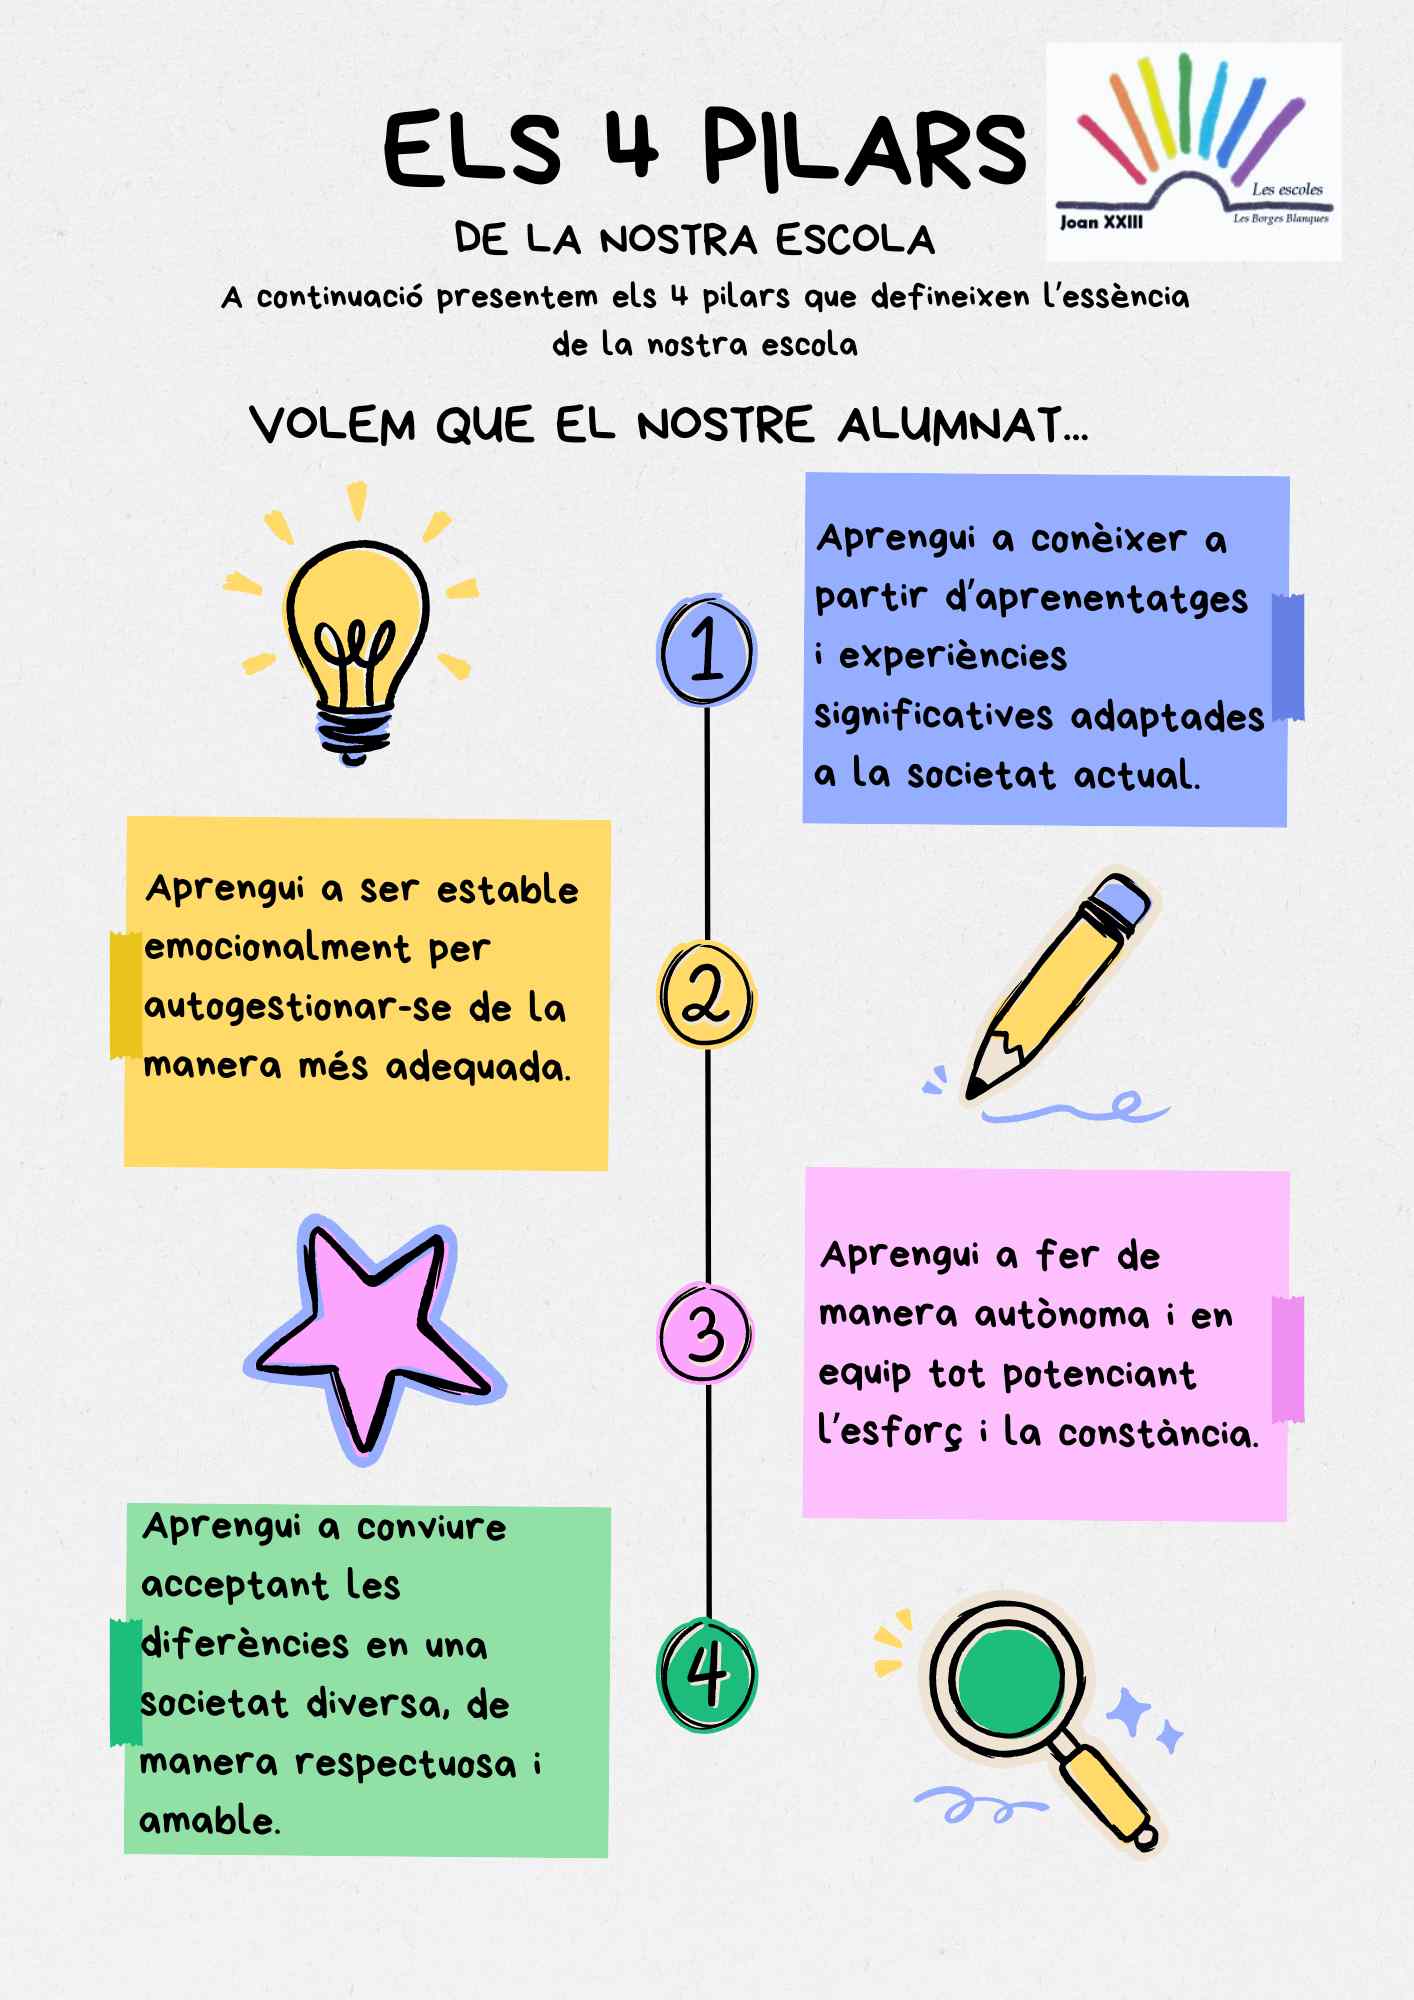 ELS 4 PILARS
Les escoles
Joan XXIII
Les Borges Blanques
DE LA NOSTRA ESCOLA
A continuació presentem els 4 pilars que defineixen l'essència
de la nostra escola
VOLEM QUE EL NOSTRE ALUMNAT...
1
Aprengui a conèixer a
partir d'aprenentatges
i experiències
significatives adaptades
a la societat actual.
2
Aprengui a ser estable
emocionalment per
autogestionar-se de la
manera més adequada.
3
Aprengui a fer de
manera autònoma i en
equip tot potenciant
l'esforç i la constància.
4
Aprengui a conviure
acceptant les
diferències en una
societat diversa, de
manera respectuosa i
amable.